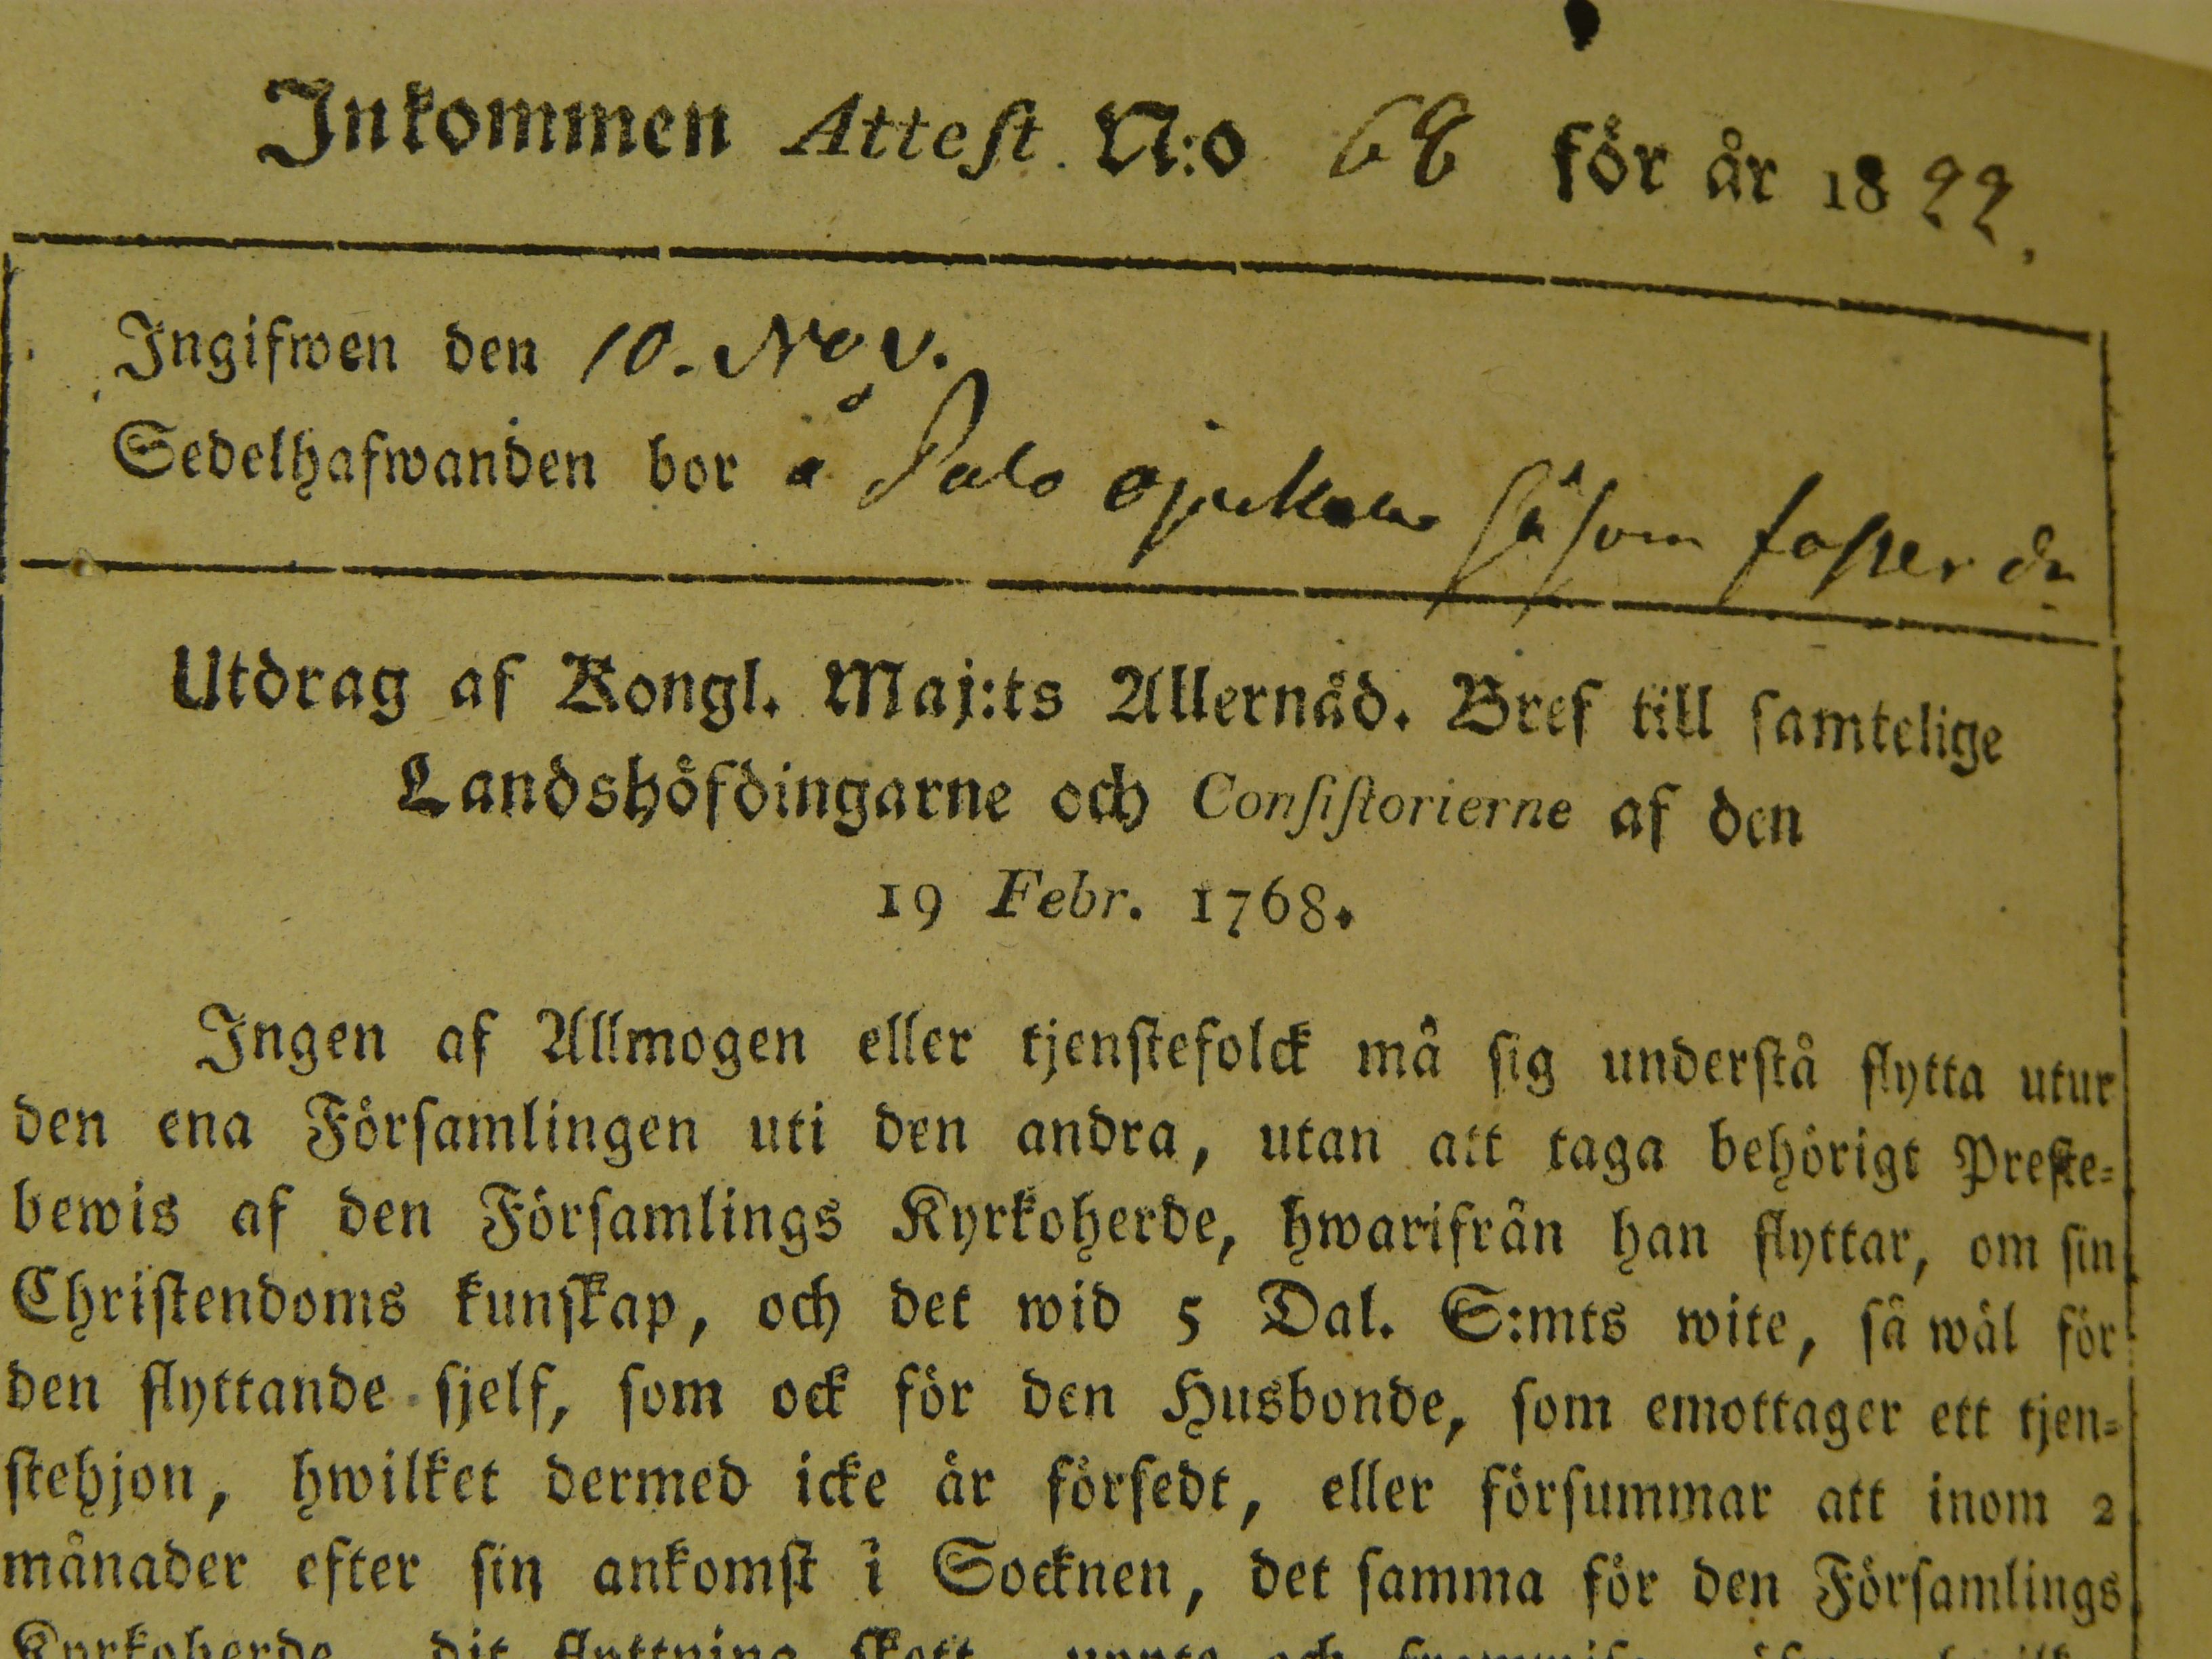 Inkommen Attest N:o 68 för år 1822.
Ingifwen den 10. Nov.
Sedelhafwanden bor å såsom foster dr
Utdrag af Kongl. Maj:ts Allernåd. Bref till samtelige
Landshöfdingarne och Consistorierne af den
19 Febr. 1768.
Ingen af Allmogen eller tjenstefolck må sig understå flytta utur
den ena Församlingen uti den andra, utan att taga behörigt Preste=
bewis af den Församlings Kyrkoherde, hwarifrån han flyttar, om sin
Christendoms kunskap, och det wid 5 Dal. S:mts wite, så wäl för
den flyttande sjelf, som ock för den Husbonde, som emottager ett tjen=
stehjon, hwilket dermed icke är försedt, eller försummar att inom 2
månader efter sin ankomst i Socknen, det samma för den Församlings
Kyrkoherde, dit flyttning skett